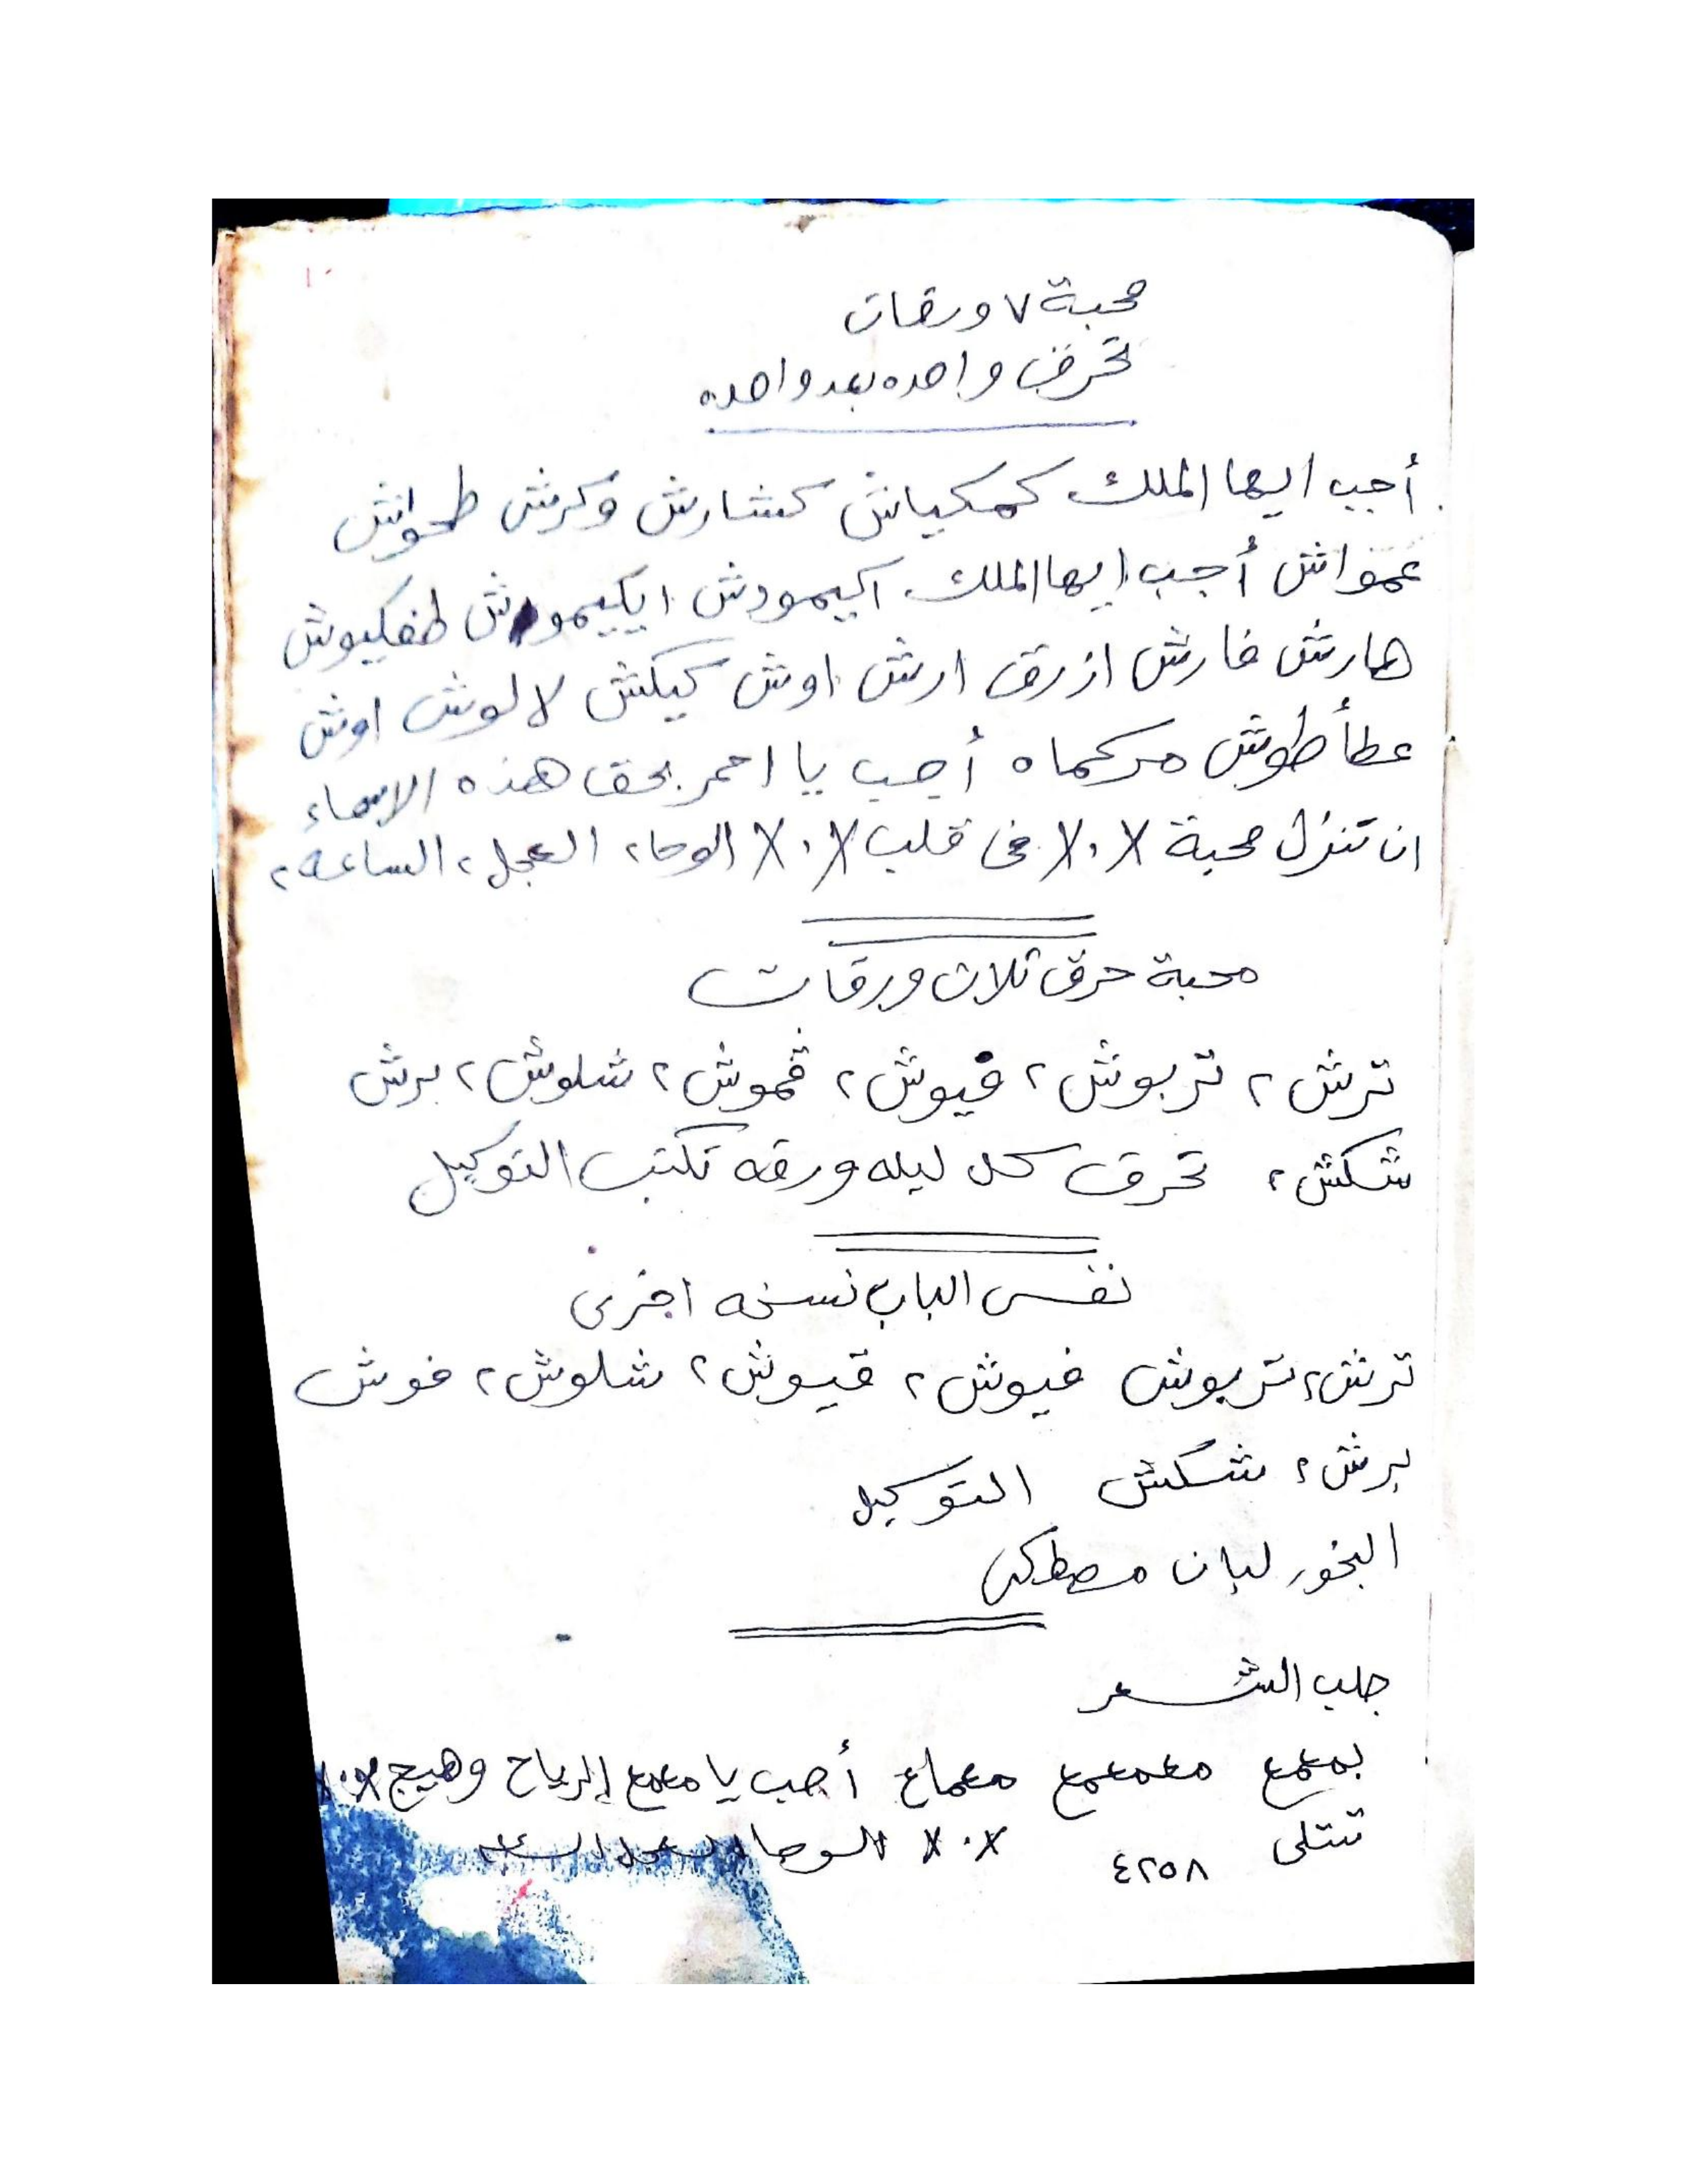 محبة ٧ ورقات
تحرق واحده بعد واحده
أجب ايها الملك كمكياش كشارش وكرش طحواش
عمواش أجب ايها الملك اكيمودش ايكييمو ش طفكيوش
هارش فارش ازرق ارش اوش كيكش لالوش اوش
عطأطوش مركماه أجب يا احمر بحق هذه الاسماء
ان تنزل محبة X٠X فى قلب X٠X الوحا٢ العجل٢ الساعه٢
محبة حرق ثلاث ورقات
ترش ٢ تربوش ٢ فيوش ٢ قموش ٢ شلوش ٢ برش
شكش ٢ تحرق كل ليله ورقه تكتب التوكيل
نفس الباب نسخه اخرى
ترش ٢ تربوش فيوش ٢ قيوش ٢ شلوش ٢ فوش
برش ٢ شكش التوكيل
البخور لبان مصطكى
جلب الشعر
بمعمع معمعمع معماع أجب يا معمع الرياح وهيج X٠X
تتلى ٤٢٥٨ X٠X الوحا العجل الساعه